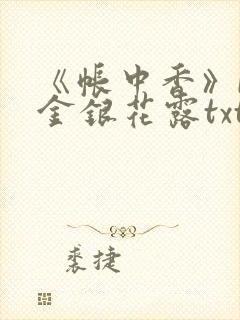 《帐中香》
金银花露txt
裘捷